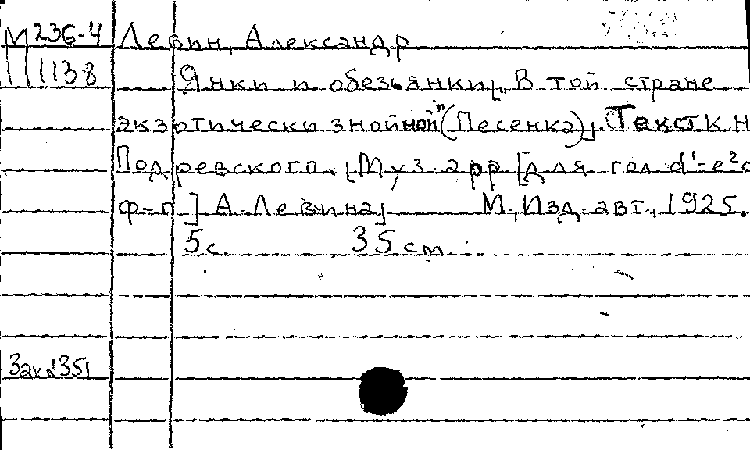 М 236-4 Левин, Александр
1138 Янки и обезьянки. „В той стране
экзотически знойной" (Песенка). Текст К Н
Подревского. Муз. арр [для гол d¹-e² с
ф-п] А. Левина. М., Изд. авт., 1925.
5 с. 35 см.
Зак 1351